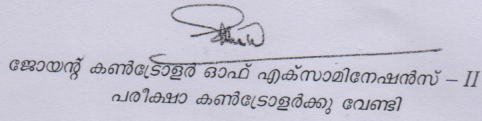 ജോയന്റ് കൺട്രോളർ ഓഫ് എക്സാമിനേഷൻസ് – II
പരീക്ഷാ കൺട്രോളർക്കു വേണ്ടി